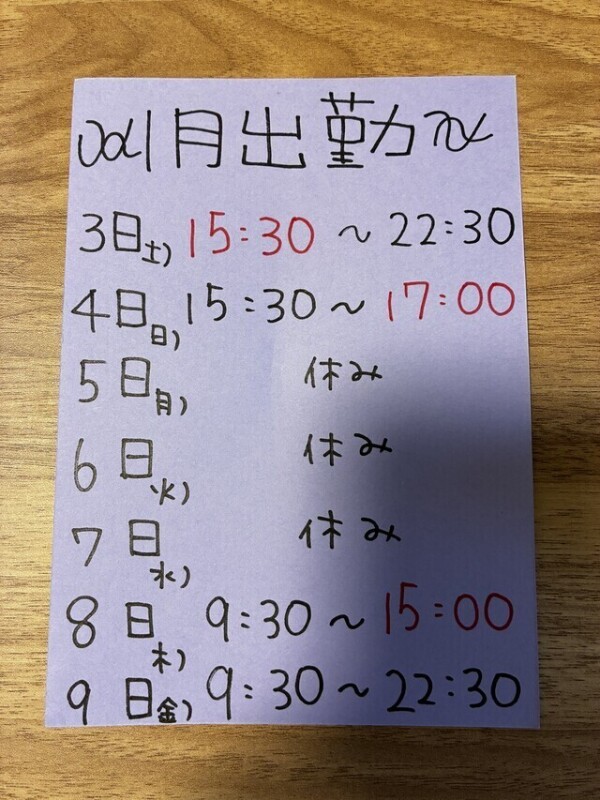 1月出勤
3日土) 15:30 ~ 22:30
4日日) 15:30 ~ 17:00
5日月) 休み
6日火) 休み
7日水) 休み
8日木) 9:30 ~ 15:00
9日金) 9:30 ~ 22:30